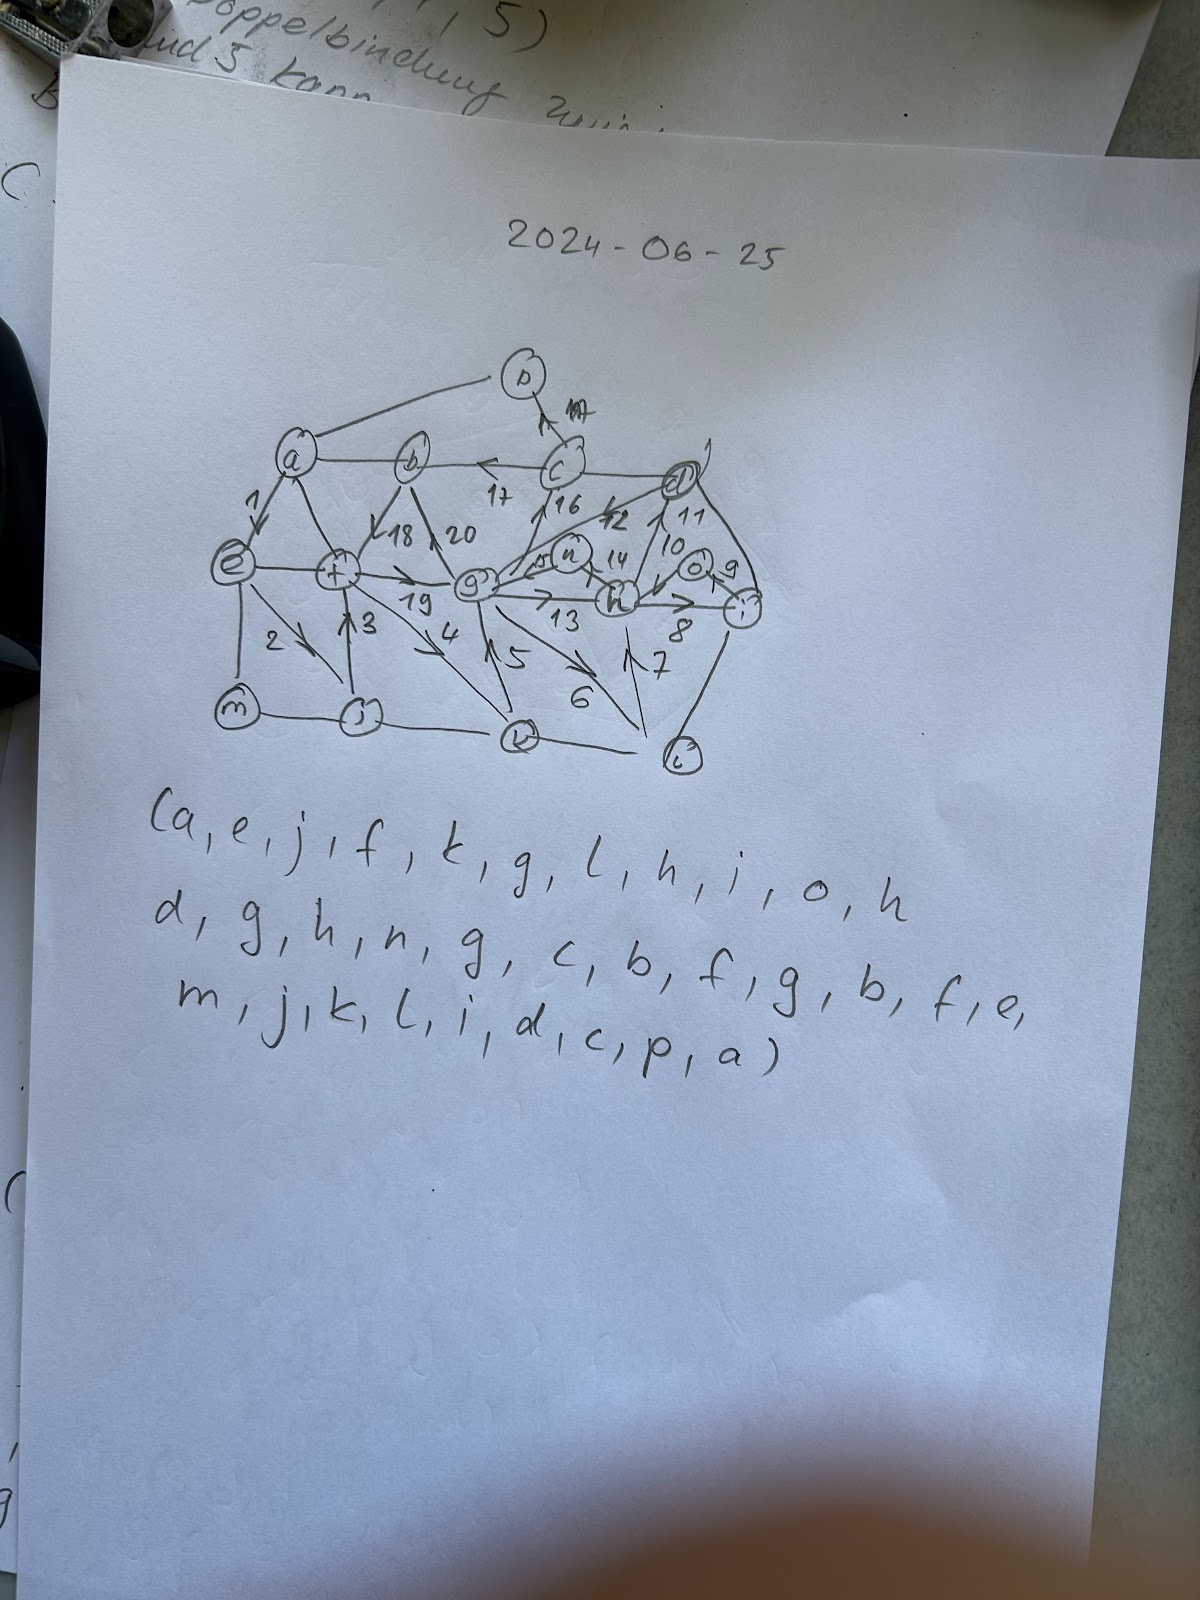 , 5)
Doppelbindung
und 5 kann
2024-06-25
p
a b c d
17 16 12 11
1 18 20 15 n 14 10 o 9
e f g h i
19 13 8
2 3 4 5 6 7
m j k l
(a, e, j, f, k, g, l, h, i, o, h
d, g, h, n, g, c, b, f, g, b, f, e,
m, j, k, l, i, d, c, p, a)